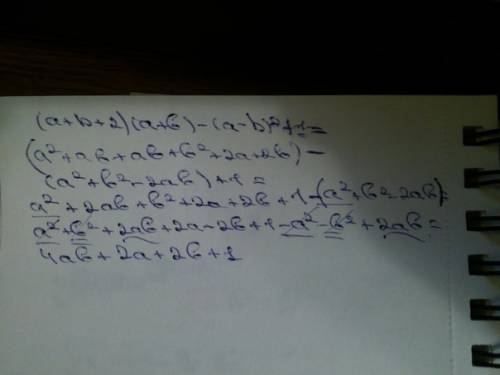 (a+b+2)(a+b)-(a-b)²+1=
(a²+ab+ab+b²+2a+2b)-
(a²+b²-2ab)+1=
a²+2ab+b²+2a+2b+1-(a²+b²-2ab)=
a²+b²+2ab+2a-2b+1-a²-b²+2ab=
4ab+2a+2b+1